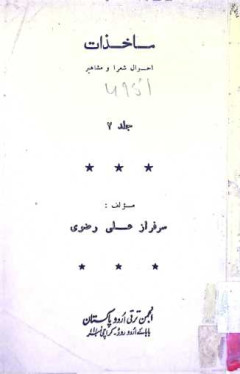 ماخذات
احوال شعرا و مشاہیر
جلد ۷
★ ★ ★
مؤلف :
سرفراز علی رضوی
★ ★ ★
انجمن ترقی اُردو پاکستان
بابائے اردو روڈ۔ کراچی